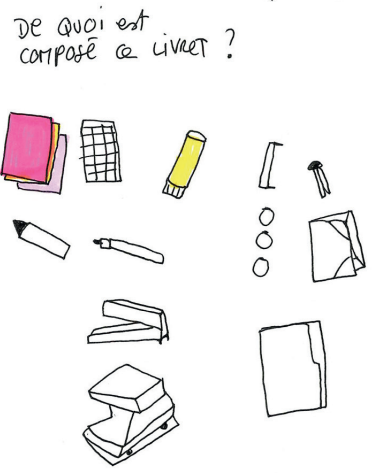 DE QUOI est
COMPOSÉ CE LIVRET ?